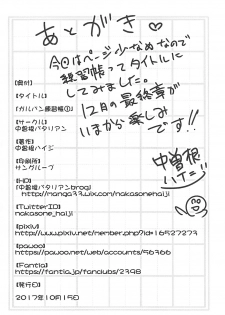 あとがき♡
今回はページ少なめなので
練習帳ってタイトルに
してみました。
12月の最終章が
いまから楽しみ
です!!
中曽根
ハイジ
【奥付】
【タイトル】
【ガルパン練習帳①】
【サークル】
中曽根バタリアン
【著者】
中曽根ハイジ
【印刷所】
サングループ
【HP】
【中曽根バタリアンbrog】
http://manga33.wix.com/nakasonehaiji
【TwitterID】
nakasone_haiji
【pixiv】
http://www.pixiv.net/member.php?id=16527273
【pawoo】
https://pawoo.net/web/accounts/56366
【Fantia】
https://fantia.jp/fanclubs/2398
【発行日】
2017年10月15日